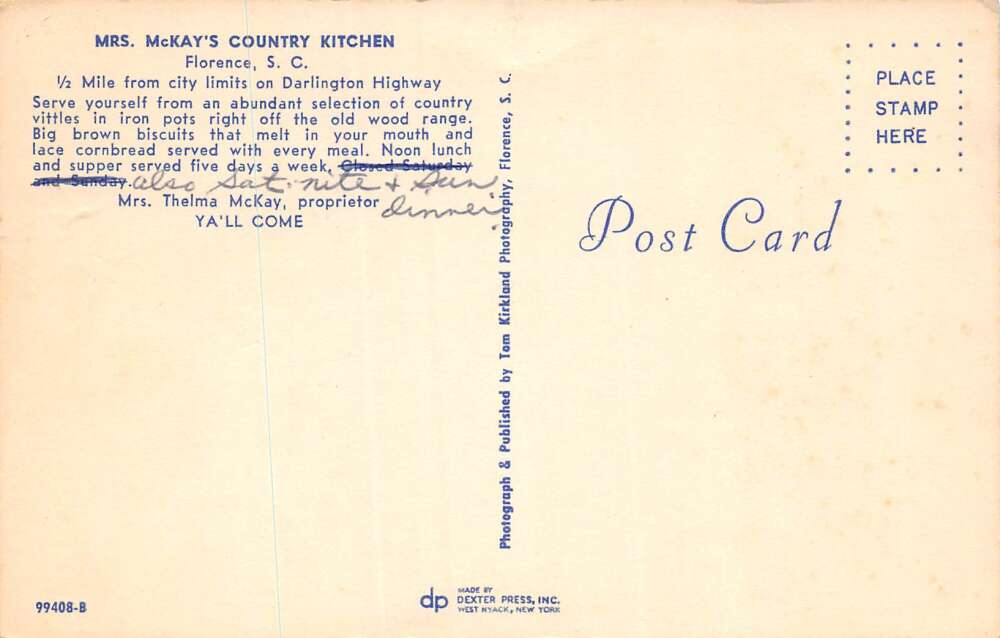 MRS. McKAY'S COUNTRY KITCHEN
Florence, S. C.
½ Mile from city limits on Darlington Highway
Serve yourself from an abundant selection of country
vittles in iron pots right off the old wood range.
Big brown biscuits that melt in your mouth and
lace cornbread served with every meal. Noon lunch
and supper served five days a week. Closed Saturday
and Sunday. also Sat. nite + Sun.
dinner.
Mrs. Thelma McKay, proprietor
YA'LL COME
Photograph & Published by Tom Kirkland Photography, Florence, S. C.
Post Card
PLACE
STAMP
HERE
99408-B
dp
MADE BY
DEXTER PRESS, INC.
WEST NYACK, NEW YORK